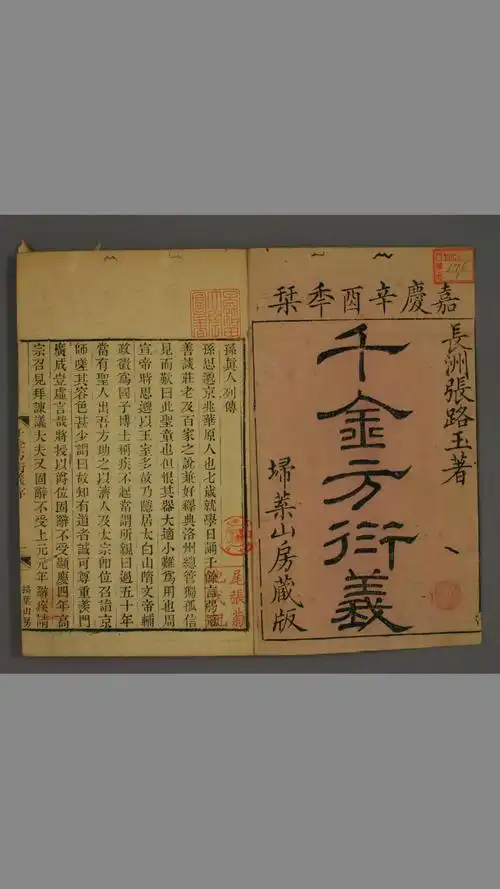 嘉慶辛酉年栞
長洲張路玉著
千金方衍義
埽葉山房藏版
孫眞人列傳
孫思邈京兆華原人也七歲就學日誦千餘言弱冠
善談莊老及百家之說兼好釋典洛州總管獨孤信
見而歎曰此聖童也但恨其器大適小難爲用也周
宣帝時思邈以王室多故乃隱居太白山隋文帝輔
政徵爲國子博士稱疾不起嘗謂所親曰過五十年
當有聖人出吾方助之以濟人及太宗卽位召詣京
師嗟其容色甚少謂曰故知有道者誠可尊重羨門
廣成豈虛言哉將授以爵位固辭不受顯慶四年高
宗召見拜諫議大夫又固辭不受上元元年辭疾請
埽葉山房
尾張菊